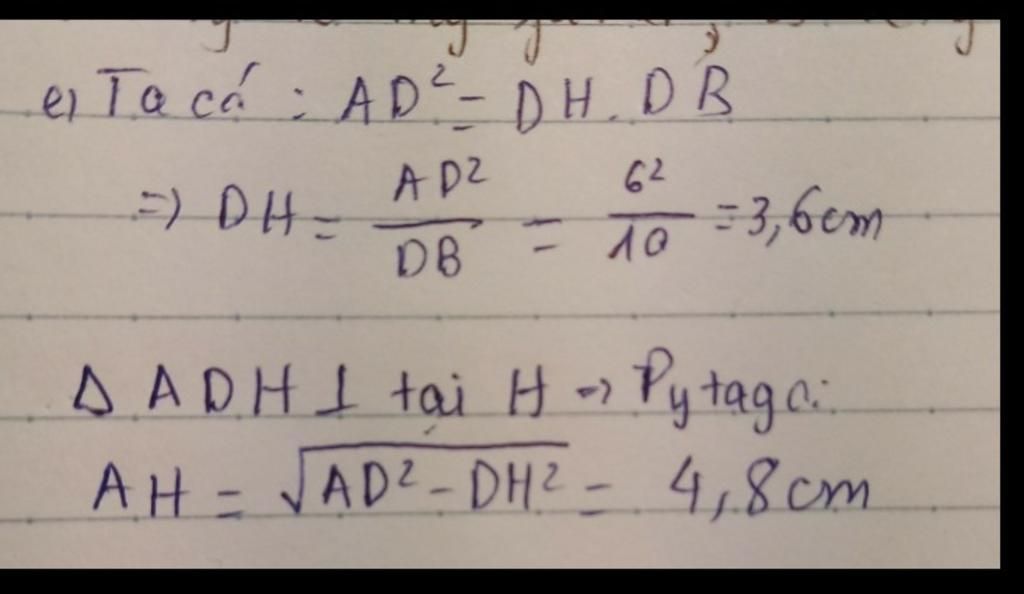 e) Ta có : AD² = DH . DB
=> DH = AD²/DB = 6²/10 = 3,6cm
Δ ADH ⊥ tại H => Pytago:
AH = √(AD² - DH²) = 4,8cm